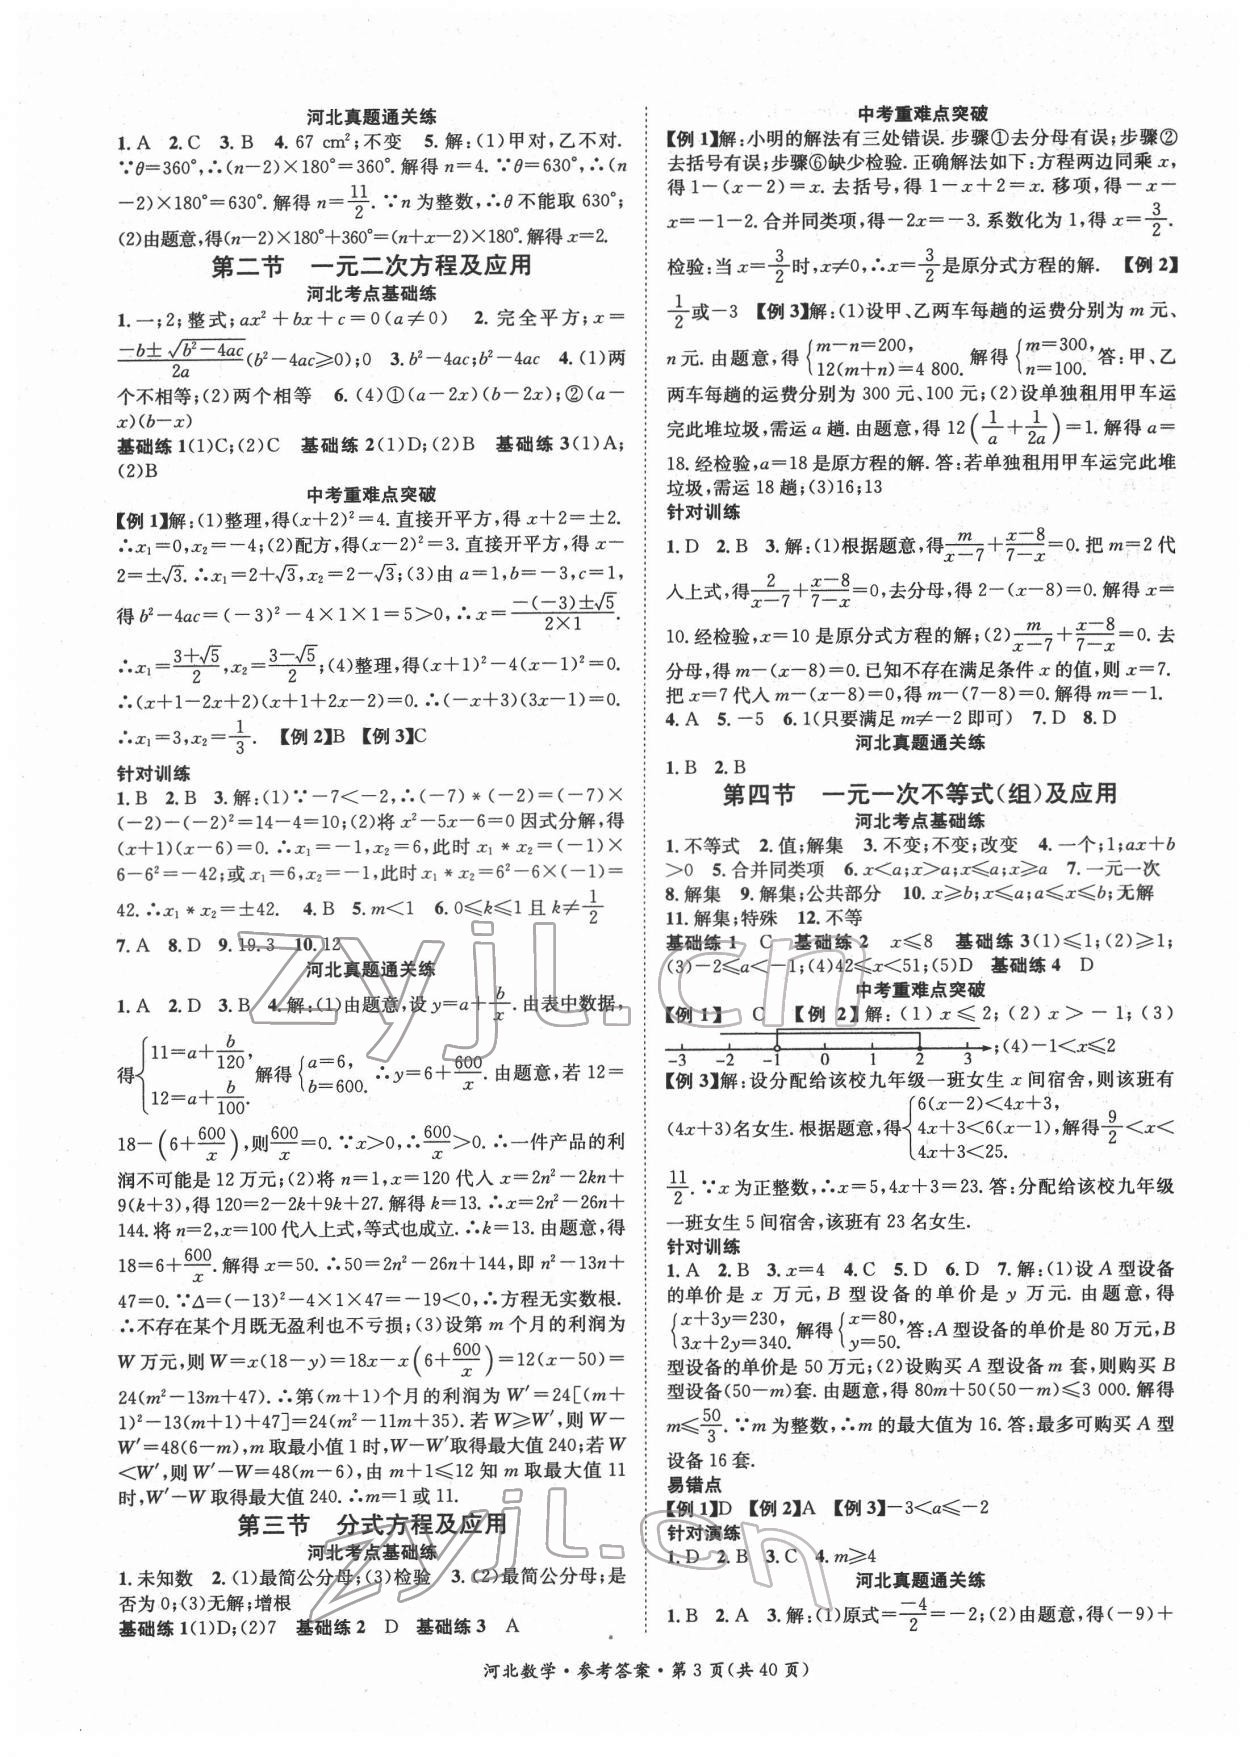 河北真题通关练
1. A 2. C 3. B 4. 67 cm²;不变 5. 解:(1)甲对,乙不对.
∵θ=360°,∴(n-2)×180°=360°. 解得 n=4. ∵θ=630°,∴(n
-2)×180°=630°. 解得 n=11/2. ∵n 为整数,∴θ 不能取 630°;
(2)由题意,得(n-2)×180°+360°=(n+x-2)×180°. 解得 x=2.
第二节 一元二次方程及应用
河北考点基础练
1. 一;2;整式;ax²+bx+c=0(a≠0) 2. 完全平方;x=
(-b±√(b²-4ac))/2a(b²-4ac≥0);0 3. b²-4ac;b²-4ac 4. (1)两
个不相等;(2)两个相等 6. (4)①(a-2x)(b-2x);②(a-
x)(b-x)
基础练 1(1)C;(2)C 基础练 2(1)D;(2)B 基础练 3(1)A;
(2)B
中考重难点突破
【例 1】解:(1)整理,得(x+2)²=4. 直接开平方,得 x+2=±2.
∴x₁=0,x₂=-4;(2)配方,得(x-2)²=3. 直接开平方,得 x-
2=±√3. ∴x₁=2+√3,x₂=2-√3;(3)由 a=1,b=-3,c=1,
得 b²-4ac=(-3)²-4×1×1=5>0,∴x=(-(-3)±√5)/(2×1).
∴x₁=(3+√5)/2,x₂=(3-√5)/2;(4)整理,得(x+1)²-4(x-1)²=0.
∴(x+1-2x+2)(x+1+2x-2)=0. ∴(-x+3)(3x-1)=0.
∴x₁=3,x₂=1/3. 【例 2】B 【例 3】C
针对训练
1. B 2. B 3. 解:(1)∵-7<-2,∴(-7)*(-2)=(-7)×
(-2)-(-2)²=14-4=10;(2)将 x²-5x-6=0 因式分解,得
(x+1)(x-6)=0. ∴x₁=-1,x₂=6,此时 x₁*x₂=(-1)×
6-6²=-42;或 x₁=6,x₂=-1,此时 x₁*x₂=6²-6×(-1)=
42. ∴x₁*x₂=±42. 4. B 5. m<1 6. 0≤k≤1 且 k≠1/2
7. A 8. D 9. 19.3 10. 12
河北真题通关练
1. A 2. D 3. B 4. 解:(1)由题意,设 y=a+b/x. 由表中数据,
得{11=a+b/120, 12=a+b/100. 解得{a=6, b=600. ∴y=6+600/x. 由题意,若 12=
18-(6+600/x),则600/x=0. ∵x>0,∴600/x>0. ∴一件产品的利
润不可能是 12 万元;(2)将 n=1,x=120 代入 x=2n²-2kn+
9(k+3),得 120=2-2k+9k+27. 解得 k=13. ∴x=2n²-26n+
144. 将 n=2,x=100代入上式,等式也成立. ∴k=13. 由题意,得
18=6+600/x. 解得 x=50. ∴50=2n²-26n+144,即 n²-13n+
47=0. ∵Δ=(-13)²-4×1×47=-19<0,∴方程无实数根.
∴不存在某个月既无盈利也不亏损;(3)设第 m 个月的利润为
W 万元,则 W=x(18-y)=18x-x(6+600/x)=12(x-50)=
24(m²-13m+47). ∴第(m+1)个月的利润为 W′=24[(m+
1)²-13(m+1)+47]=24(m²-11m+35). 若 W≥W′,则 W-
W′=48(6-m),m 取最小值 1 时,W-W′取得最大值 240;若 W
<W′,则 W′-W=48(m-6),由 m+1≤12 知 m 取最大值 11
时,W′-W 取得最大值 240. ∴m=1 或 11.
第三节 分式方程及应用
河北考点基础练
1. 未知数 2. (1)最简公分母;(3)检验 3. (2)最简公分母;是
否为 0;(3)无解;增根
基础练 1(1)D;(2)7 基础练 2 D 基础练 3 A
中考重难点突破
【例 1】解:小明的解法有三处错误. 步骤①去分母有误;步骤②
去括号有误;步骤⑥缺少检验. 正确解法如下:方程两边同乘 x,
得 1-(x-2)=x. 去括号,得 1-x+2=x. 移项,得-x-
x=-1-2. 合并同类项,得-2x=-3. 系数化为 1,得 x=3/2.
检验:当 x=3/2时,x≠0,∴x=3/2是原分式方程的解. 【例 2】
1/2或-3 【例 3】解:(1)设甲、乙两车每趟的运费分别为 m 元、
n 元. 由题意,得{m-n=200, 12(m+n)=4 800. 解得{m=300, n=100. 答:甲、乙
两车每趟的运费分别为 300 元、100 元;(2)设单独租用甲车运
完此堆垃圾,需运 a 趟. 由题意,得 12(1/a+1/2a)=1. 解得 a=
18. 经检验,a=18 是原方程的解. 答:若单独租用甲车运完此堆
垃圾,需运 18 趟;(3)16;13
针对训练
1. D 2. B 3. 解:(1)根据题意,得m/(x-7)+(x-8)/(7-x)=0. 把 m=2 代
入上式,得2/(x-7)+(x-8)/(7-x)=0,去分母,得 2-(x-8)=0. 解得 x=
10. 经检验,x=10 是原分式方程的解;(2)m/(x-7)+(x-8)/(7-x)=0. 去
分母,得 m-(x-8)=0. 已知不存在满足条件 x 的值,则 x=7.
把 x=7 代入 m-(x-8)=0,得 m-(7-8)=0. 解得 m=-1.
4. A 5. -5 6. 1(只要满足 m≠-2 即可) 7. D 8. D
河北真题通关练
1. B 2. B
第四节 一元一次不等式(组)及应用
河北考点基础练
1. 不等式 2. 值;解集 3. 不变;不变;改变 4. 一个;1;ax+b
>0 5. 合并同类项 6. x<a;x>a;x≤a;x≥a 7. 一元一次
8. 解集 9. 解集;公共部分 10. x≥b;x≤a;a≤x≤b;无解
11. 解集;特殊 12. 不等
基础练 1 C 基础练 2 x≤8 基础练 3(1)≤1;(2)≥1;
(3)-2≤a<-1;(4)42≤x<51;(5)D 基础练 4 D
中考重难点突破
【例 1】 C 【例 2】解:(1)x≤2;(2)x>-1;(3)
-3 -2 -1 0 1 2 3 ;(4)-1<x≤2
【例 3】解:设分配给该校九年级一班女生 x 间宿舍,则该班有
(4x+3)名女生. 根据题意,得{6(x-2)<4x+3, 4x+3<6(x-1), 4x+3<25. 解得9/2<x<
11/2. ∵x 为正整数,∴x=5,4x+3=23. 答:分配给该校九年级
一班女生 5 间宿舍,该班有 23 名女生.
针对训练
1. A 2. B 3. x=4 4. C 5. D 6. D 7. 解:(1)设 A 型设备
的单价是 x 万元,B 型设备的单价是 y 万元. 由题意,得
{x+3y=230, 3x+2y=340. 解得{x=80, y=50. 答:A 型设备的单价是 80 万元,B
型设备的单价是 50 万元;(2)设购买 A 型设备 m 套,则购买 B
型设备(50-m)套. 由题意,得 80m+50(50-m)≤3 000. 解得
m≤50/3. ∵m 为整数,∴m 的最大值为 16. 答:最多可购买 A 型
设备 16 套.
易错点
【例 1】D 【例 2】A 【例 3】-3<a≤-2
针对演练
1. D 2. B 3. C 4. m≥4
河北真题通关练
1. B 2. A 3. 解:(1)原式=-4/2=-2;(2)由题意,得(-9)+
河北数学·参考答案·第 3 页(共 40 页)
zyjl.cn
zyjl.cn